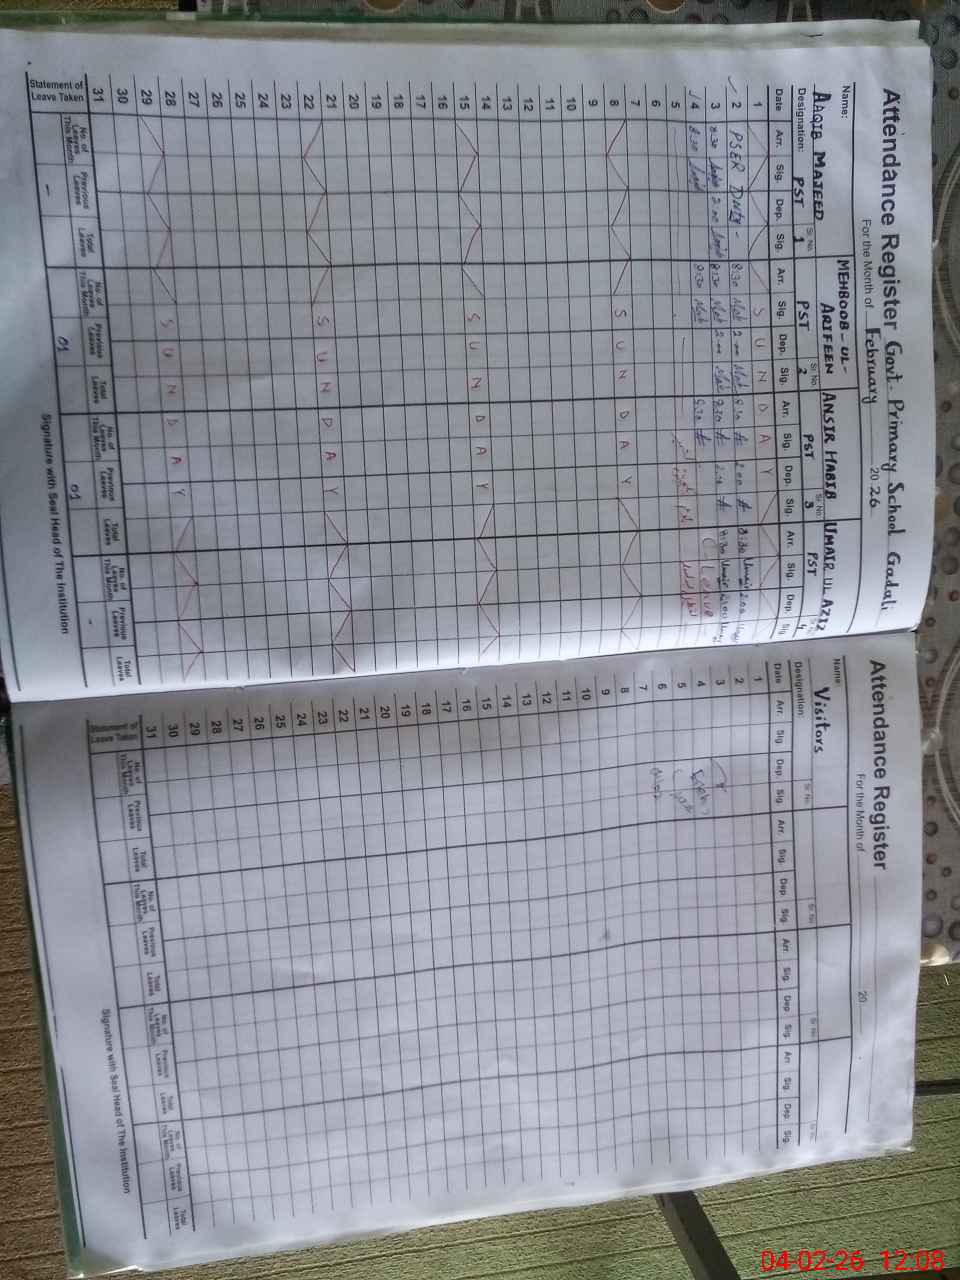 Attendance Register Govt. Primary School Gadali
For the Month of February 2026
Name: AAQIB MAJEED MEHBOOB-UL-ARIFEEN ANSIR HABIB UMAIR UL AZIZ
Designation: PST Sr. No. 1 PST Sr. No. 2 PST Sr. No. 3 PST 4
Date Arr. Sig. Dep. Sig. Arr. Sig. Dep. Sig. Arr. Sig. Dep. Sig. Arr. Sig. Dep. Sig.
1 S U N D A Y
2 PSER Duty - 8:30 Meh 2:00 Meh 8:30 2:00 8:30 Umair 2:00
3 8:30 2:00 8:30 Meh 2:00 Meh 8:30 2:00 8:30 Umair 2:00
4 8:30 8:30 Meh 8:30 Leave
5
6
7
8 S U N D A Y
9
10
11
12
13
14
15 S U N D A Y
16
17
18
19
20
21
22 S U N D A Y
23
24
25
26
27
28 S U N D A Y
29
30
31
Statement of Leave Taken
No. of Leaves This Month Previous Leaves Total Leaves No. of Leaves This Month Previous Leaves Total Leaves No. of Leaves This Month Previous Leaves Total Leaves No. of Leaves This Month Previous Leaves Total Leaves
- 01 01 -
Signature with Seal Head of The Institution
Attendance Register
For the Month of 20
Name Visitors
Designation: Sr. No. Sr. No. Sr. No. Sr. No.
Date Arr. Sig. Dep. Sig. Arr. Sig. Dep. Sig. Arr. Sig. Dep. Sig. Arr. Sig. Dep. Sig.
1
2
3
4
5
6
7
8
9
10
11
12
13
14
15
16
17
18
19
20
21
22
23
24
25
26
27
28
29
30
31
Statement of Leave Taken
No. of Leaves This Month Previous Leaves Total Leaves No. of Leaves This Month Previous Leaves Total Leaves No. of Leaves This Month Previous Leaves Total Leaves No. of Leaves This Month Previous Leaves Total Leaves
Signature with Seal Head of The Institution
04-02-26 12:08